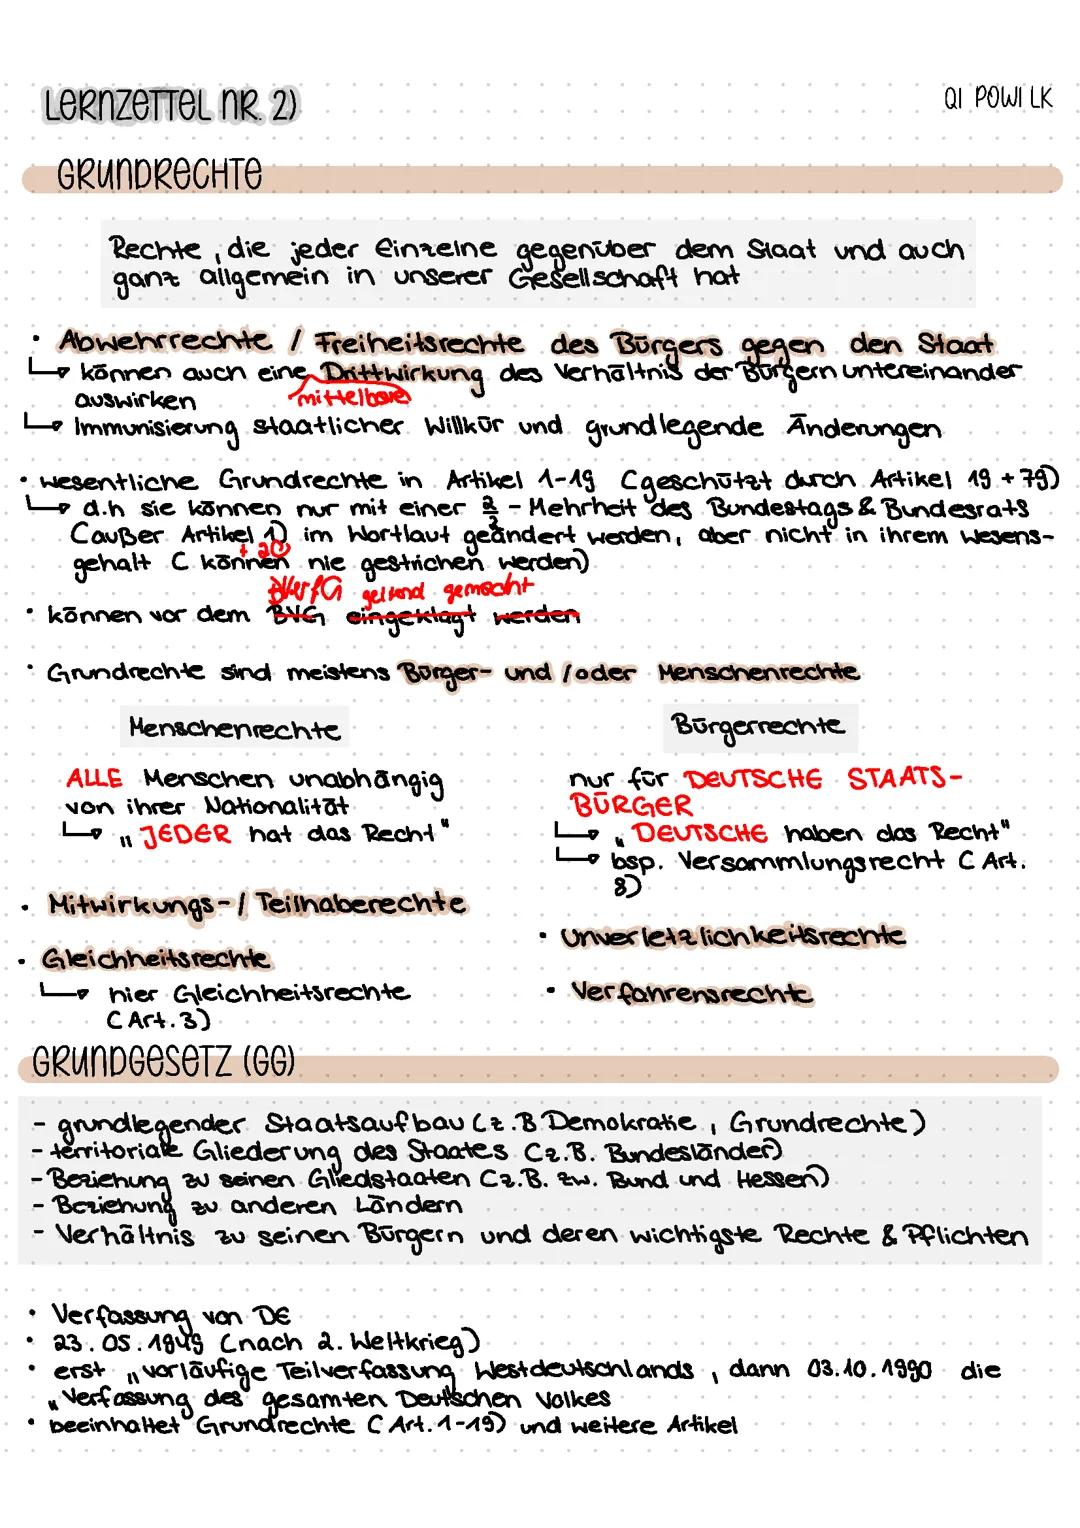 LERNZETTEL NR. 2)
Q1 POWI LK
GRUNDRECHTE
Rechte, die jeder Einzelne gegenüber dem Staat und auch
ganz allgemein in unserer Gesellschaft hat
• Abwehrrechte / Freiheitsrechte des Bürgers gegen den Staat
↳ können auch eine Drittwirkung des Verhältnis der Bürgern untereinander
auswirken mittelbare
↳ Immunisierung staatlicher Willkür und grundlegende Änderungen
• wesentliche Grundrechte in Artikel 1-19 (geschützt durch Artikel 19 + 79)
↳ d.h sie können nur mit einer 2/3 - Mehrheit des Bundestags & Bundesrats
(außer Artikel 1) im Wortlaut geändert werden, aber nicht in ihrem Wesens-
+ 20
gehalt (können nie gestrichen werden)
BVerfG geltend gemacht
• können vor dem BVG eingeklagt werden
• Grundrechte sind meistens Bürger- und / oder Menschenrechte
Menschenrechte
ALLE Menschen unabhängig
von ihrer Nationalität
↳ "JEDER hat das Recht"
Bürgerrechte
nur für DEUTSCHE STAATS-
BÜRGER
↳ "DEUTSCHE haben das Recht"
↳ bsp. Versammlungsrecht (Art.
8)
• Mitwirkungs- / Teilhaberechte
• Gleichheitsrechte
↳ hier Gleichheitsrechte
(Art. 3)
• Unverletzlichkeitsrechte
• Verfahrensrechte
GRUNDGESETZ (GG)
- grundlegender Staatsaufbau (z.B Demokratie, Grundrechte)
- territoriale Gliederung des Staates (z.B. Bundesländer)
- Beziehung zu seinen Gliedstaaten (z.B. zw. Bund und Hessen)
- Beziehung zu anderen Ländern
- Verhältnis zu seinen Bürgern und deren wichtigste Rechte & Pflichten
• Verfassung von DE
• 23.05.1949 (nach 2. Weltkrieg)
• erst "vorläufige Teilverfassung Westdeutschlands, dann 03.10.1990 die
"Verfassung des gesamten Deutschen Volkes
• beeinhaltet Grundrechte (Art. 1-19) und weitere Artikel